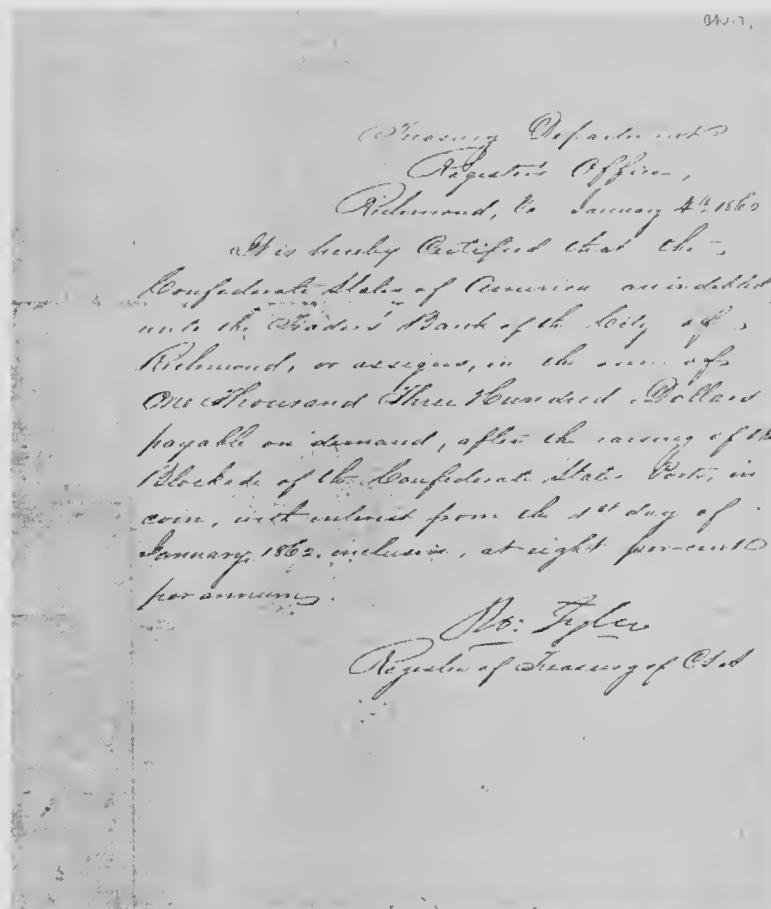 Treasury Department
Register's Office,
Richmond, Va January 4th. 1862
It is hereby Certified that the
Confederate States of America are indebted
unto the Traders' Bank of the City of
Richmond, or assigns, in the sum of
One Thousand Three Hundred Dollars
payable on demand, after the raising of the
Blockade of the Confederate States Ports, in
coin, with interest from the 1st day of
January, 1862. inclusive, at eight per-cent
per annum.
Ro: Tyler
Register of Treasury of CSA